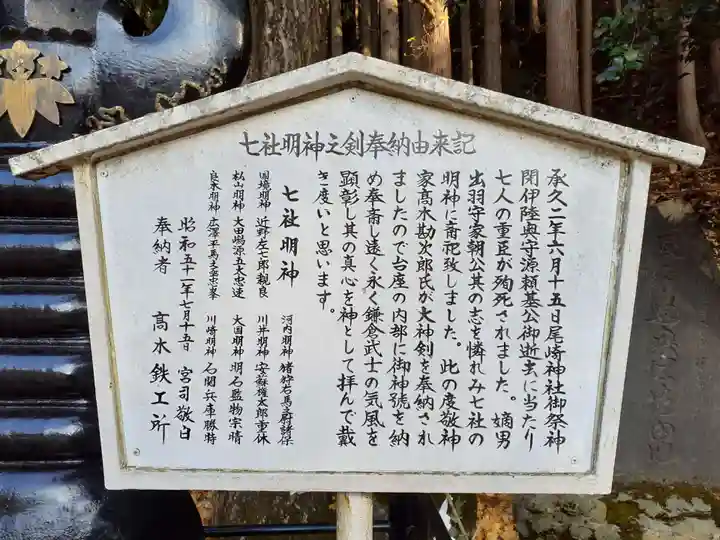 七社明神之剣奉納由来記
承久二年六月十五日尾崎神社御祭神
閉伊陸奥守源頼基公御逝去に当たり
七人の重臣が殉死されました。嫡男
出羽守家朝公其の志を憐れみ七社の
明神に斎祀致しました。此の度敬神
家高木勘次郎氏が大神剣を奉納され
ましたので台座の内部に御神號を納
め奉斎し遠く永く鎌倉武士の気風を
顕彰し其の真心を神として拝んで戴
き度いと思います。
七社明神
河内明神 猪狩右馬之尉諸保
国境明神 近野左七郎親良
川井明神 安蘇権太郎重休
松山明神 大田嶋源五大忠連
大国明神 明石監物宗晴
良木明神 広澤平馬之丞忠峯
川崎明神 石関兵庫勝特
昭和五十一年七月十五日 宮司敬白
奉納者 高木鉄工所